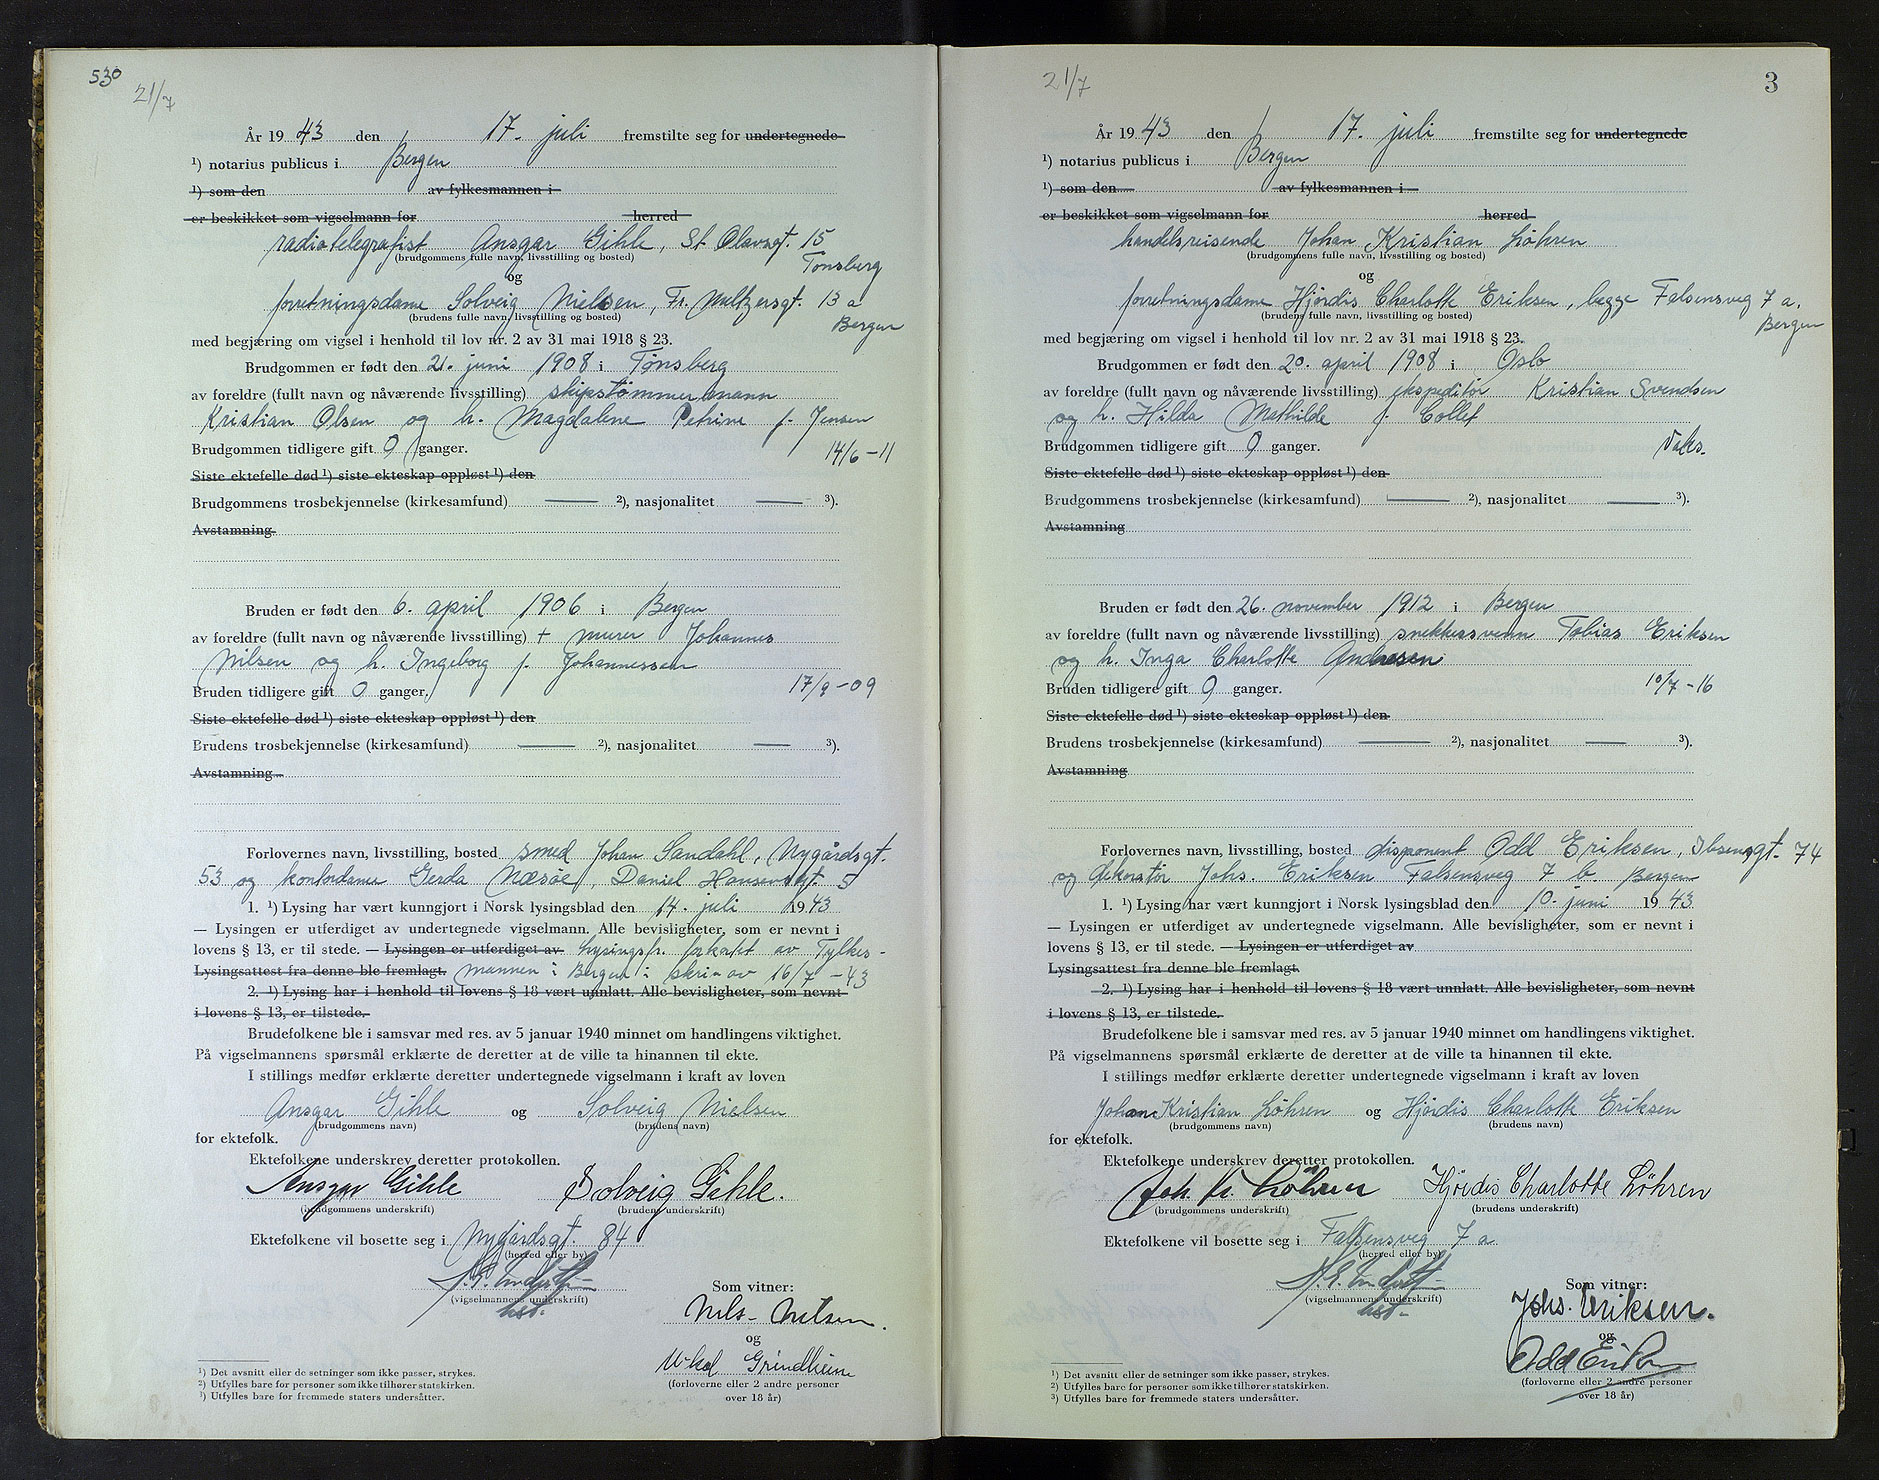 530
21/7
År 1943 den 17. juli fremstilte seg for undertegnede
¹) notarius publicus i Bergen
¹) som den av fylkesmannen i
er beskikket som vigselmann for herred
radiotelegrafist Ansgar Gihle, St. Olavsgt. 15
Tønsberg
(brudgommens fulle navn, livsstilling og bosted)
og
forretningsdame Solveig Nielsen, Fr. Meltzersgt. 13 a
(brudens fulle navn, livsstilling og bosted)
Bergen
med begjæring om vigsel i henhold til lov nr. 2 av 31 mai 1918 § 23.
Brudgommen er født den 21. juni 1908 i Tønsberg
av foreldre (fullt navn og nåværende livsstilling) skipstømmermann
Kristian Olsen og h. Magdalene Petrine f. Jensen
Brudgommen tidligere gift 0 ganger. 14/6-11
Siste ektefelle død ¹) siste ekteskap oppløst ¹) den
Brudgommens trosbekjennelse (kirkesamfund) — ²), nasjonalitet — ³).
Avstamning
Bruden er født den 6. april 1906 i Bergen
av foreldre (fullt navn og nåværende livsstilling) + murer Johannes
Nilsen og h. Ingeborg f. Johannessen
Bruden tidligere gift 0 ganger. 17/9-09
Siste ektefelle død ¹) siste ekteskap oppløst ¹) den
Brudens trosbekjennelse (kirkesamfund) — ²), nasjonalitet — ³).
Avstamning
Forlovernes navn, livsstilling, bosted smed Johan Sandahl, Nygårdsgt.
53 og kontordame Gerda Næsøe, Daniel Hansensgt. 5
1. ¹) Lysing har vært kunngjort i Norsk lysingsblad den 14. juli 1943
— Lysingen er utferdiget av undertegnede vigselmann. Alle bevisligheter, som er nevnt i
lovens § 13, er til stede. — Lysingen er utferdiget av Lysingsfr. forkortet av Fylkes-
Lysingsattest fra denne ble fremlagt. mannen i Bergen i skriv av 16/7-43
2. ¹) Lysing har i henhold til lovens § 18 vært unnlatt. Alle bevisligheter, som nevnt
i lovens § 13, er tilstede.
Brudefolkene ble i samsvar med res. av 5 januar 1940 minnet om handlingens viktighet.
På vigselmannens spørsmål erklærte de deretter at de ville ta hinannen til ekte.
I stillings medfør erklærte deretter undertegnede vigselmann i kraft av loven
Ansgar Gihle og Solveig Nielsen
(brudgommens navn) (brudens navn)
for ektefolk.
Ektefolkene underskrev deretter protokollen.
Ansgar Gihle Solveig Gihle.
(brudgommens underskrift) (brudens underskrift)
Ektefolkene vil bosette seg i Nygårdsgt. 84
(herred eller by)
(vigselmannens underskrift)
Som vitner:
Nils Nilsen.
og
Mikal Grindheim
(forloverne eller 2 andre personer
over 18 år)
¹) Det avsnitt eller de setninger som ikke passer, strykes.
²) Utfylles bare for personer som ikke tilhører statskirken.
³) Utfylles bare for fremmede staters undersåtter.
21/7
3
År 1943 den 17. juli fremstilte seg for undertegnede
¹) notarius publicus i Bergen
¹) som den av fylkesmannen i
er beskikket som vigselmann for herred
handelsreisende Johan Kristian Løhren
(brudgommens fulle navn, livsstilling og bosted)
og
forretningsdame Hjørdis Charlotte Eriksen, begge Falsensveg 7 a.
(brudens fulle navn, livsstilling og bosted)
Bergen
med begjæring om vigsel i henhold til lov nr. 2 av 31 mai 1918 § 23.
Brudgommen er født den 20. april 1908 i Oslo
av foreldre (fullt navn og nåværende livsstilling) ekspeditør Kristian Svendsen
og h. Hilda Mathilde f. Collet
Brudgommen tidligere gift 0 ganger.
Siste ektefelle død ¹) siste ekteskap oppløst ¹) den
Brudgommens trosbekjennelse (kirkesamfund) — ²), nasjonalitet — ³).
Avstamning
Bruden er født den 26. november 1912 i Bergen
av foreldre (fullt navn og nåværende livsstilling) snekkersvenn Tobias Eriksen
og h. Inga Charlotte Andresen
Bruden tidligere gift 0 ganger. 10/7-16
Siste ektefelle død ¹) siste ekteskap oppløst ¹) den
Brudens trosbekjennelse (kirkesamfund) — ²), nasjonalitet — ³).
Avstamning
Forlovernes navn, livsstilling, bosted disponent Odd Eriksen, Ibsensgt. 74
og dekoratør Johs. Eriksen Falsensveg 7 b. Bergen
1. ¹) Lysing har vært kunngjort i Norsk lysingsblad den 10. juni 1943
— Lysingen er utferdiget av undertegnede vigselmann. Alle bevisligheter, som er nevnt i
lovens § 13, er til stede. — Lysingen er utferdiget av
Lysingsattest fra denne ble fremlagt.
2. ¹) Lysing har i henhold til lovens § 18 vært unnlatt. Alle bevisligheter, som nevnt
i lovens § 13, er tilstede.
Brudefolkene ble i samsvar med res. av 5 januar 1940 minnet om handlingens viktighet.
På vigselmannens spørsmål erklærte de deretter at de ville ta hinannen til ekte.
I stillings medfør erklærte deretter undertegnede vigselmann i kraft av loven
Johan Kristian Løhren og Hjørdis Charlotte Eriksen
(brudgommens navn) (brudens navn)
for ektefolk.
Ektefolkene underskrev deretter protokollen.
Joh. Kr. Løhren Hjørdis Charlotte Løhren
(brudgommens underskrift) (brudens underskrift)
Ektefolkene vil bosette seg i Falsensveg 7 a
(herred eller by)
(vigselmannens underskrift)
Som vitner:
Johs. Eriksen.
og
Odd Eriksen
(forloverne eller 2 andre personer
over 18 år)
¹) Det avsnitt eller de setninger som ikke passer, strykes.
²) Utfylles bare for personer som ikke tilhører statskirken.
³) Utfylles bare for fremmede staters undersåtter.